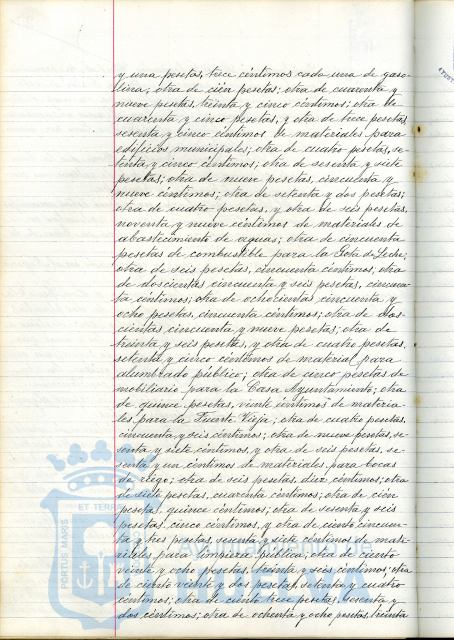 y una pesetas, trece céntimos cada una de gaso-
lina; otra de cien pesetas; otra de cuarenta y
nueve pesetas, treinta y cinco céntimos; otra de
cuarenta y cinco pesetas, y otra de trece pesetas
sesenta y cinco céntimos de materiales para
edificios municipales; otra de cuatro pesetas, se-
tenta y cinco céntimos; otra de sesenta y siete
pesetas; otra de nueve pesetas, cincuenta y
nueve céntimos; otra de setenta y dos pesetas;
otra de cuatro pesetas, y otra de seis pesetas,
noventa y nueve céntimos de materiales de
abastecimiento de aguas; otra de cincuenta
pesetas de combustible para la Gota de Leche;
otra de seis pesetas, cincuenta céntimos; otra
de doscientas cincuenta y seis pesetas, cincuen-
ta céntimos; otra de ochocientas cincuenta y
ocho pesetas, cincuenta céntimos; otra de dos-
cientas cincuenta y nueve pesetas; otra de
treinta y seis pesetas, y otra de cuatro pesetas,
setenta y cinco céntimos de material para
alumbrado público; otra de cinco pesetas de
mobiliario para la Casa Ayuntamiento; otra
de quince pesetas, veinte céntimos de materia-
les para la Fuente Vieja; otra de cuatro pesetas,
cincuenta y seis céntimos; otra de nueve pesetas, se-
senta y siete céntimos, y otra de seis pesetas, se-
senta y un céntimos de materiales para bocas
de riego; otra de seis pesetas, diez céntimos; otra
de siete pesetas, cuarenta céntimos; otra de cien
pesetas, quince céntimos; otra de sesenta y seis
pesetas, cinco céntimos, y otra de ciento cincuen-
ta y tres pesetas, sesenta y siete céntimos de mate-
riales para limpieza pública; otra de ciento
veinte y ocho pesetas, treinta y seis céntimos; otra
de ciento veinte y dos pesetas, setenta y cuatro
céntimos; otra de ciento trece pesetas, sesenta y
dos céntimos; otra de ochenta y ocho pesetas, treinta
PORTUS MARIS ET TERRA